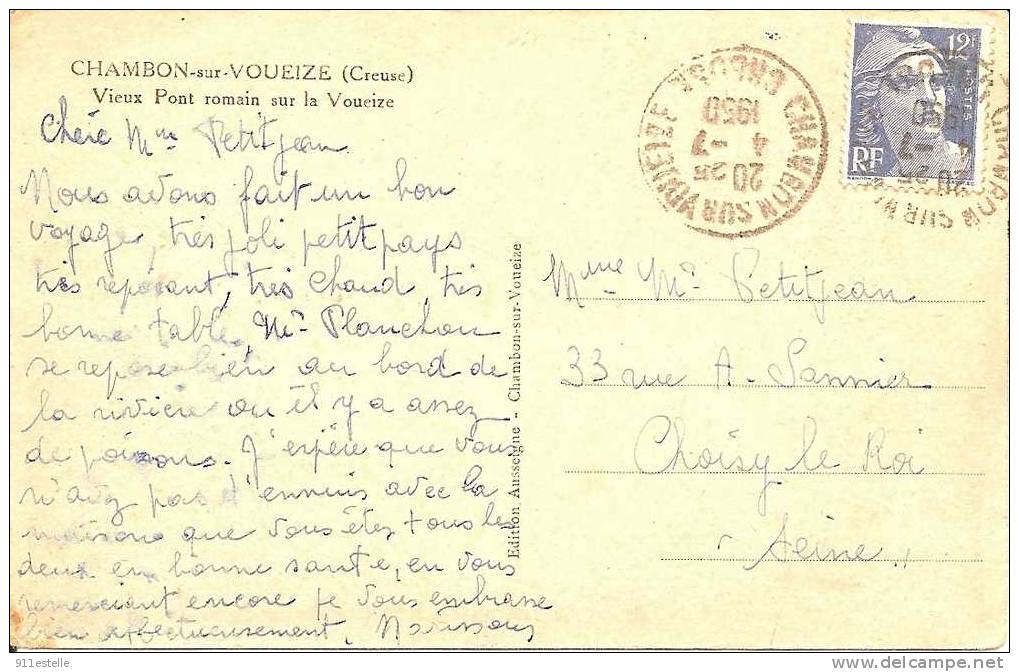 CHAMBON-sur-VOUEIZE (Creuse)
Vieux Pont romain sur la Voueize
Chère Mme Petitjean
Nous avons fait un bon
voyage, très joli petit pays
très reposant, très chaud, très
bonne table, Mr Planchon
se repose bien au bord de
la rivière ou il y a assez
de poissons. J'espère que vous
n'avez pas d'ennuis avec la
maison que vous êtes tous les
deux en bonne sante, en vous
remerciant encore je vous embrasse
bien affectueusement,
Edition Ausseigne - Chambon-sur-Voueize
CHAMBON SUR VOUEIZE CREUSE
20 25
4 - 7
1950
12F
POSTES
RF
Mme Mr Petitjean
33 rue A. Sannier
Choisy le Roi
Seine
911estelle
delcampe.net